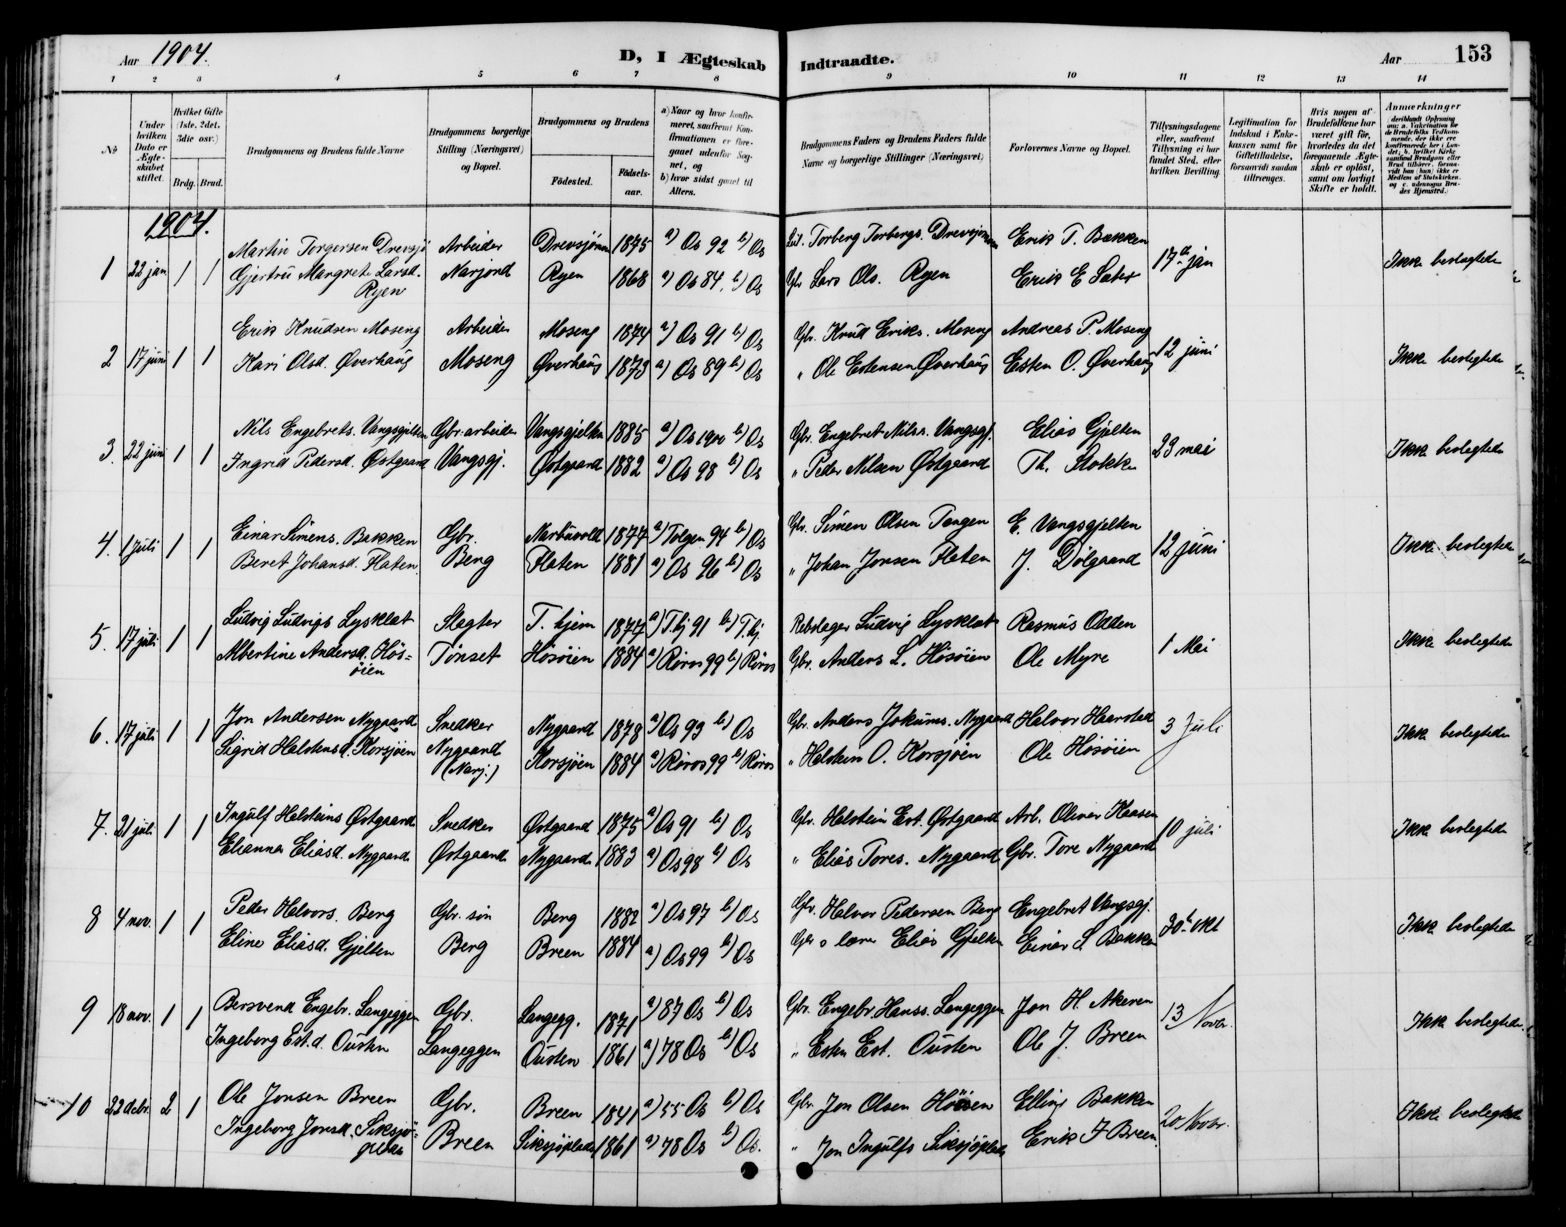 Aar 1904.
D, I Ægteskab Indtraadte.
Aar 153
1 2 3 4 5 6 7 8 9 10 11 12 13 14
№
Under hvilken Dato er Ægteskabet stiftet.
Hvilket Gifte (1ste, 2det, 3die osv.)
Brdg. Brud.
Brudgommens og Brudens fulde Navne
Brudgommens borgerlige Stilling (Næringsvei) og Bopæl.
Brudgommens og Brudens
Fødested. Fødselsaar.
a) Naar og hvor konfirmeret, saafremt Konfirmationen er foregaaet udenfor Sognet, og
b) hvor sidst gaaet til Alters.
Brudgommens Faders og Brudens Faders fulde Navne og borgerlige Stillinger (Næringsvei)
Forlovernes Navne og Bopæl.
Tillysningsdagene eller, saafremt Tillysning ei har fundet Sted, efter hvilken Bevilling.
Legitimation for Indskud i Enkekassen samt for Giftetilladelse, forsaavidt saadan tiltrænges.
Hvis nogen af Brudefolkene har været gift før, hvorledes da det foregaaende Ægteskab er opløst, samt om lovligt Skifte er holdt.
Anmærkninger
1904.
1 22 jan 1 1 Martin Torgersen Drevsjø Arbeider Drevsjømoen 1875 a) Os 92 b) Os Torberg Torbergs. Drevsjømoen Erik T. Bakken 17de jan Ikke beslegtede
Gjertru Margrete Larsd. Ryen Narjord Ryen 1868 a) Os 84. b) Os Gbr Lars Ols. Ryen Erik E Sæter
2 17 juni 1 1 Erik Knudsen Moseng Arbeider Moseng 1874 a) Os 91 b) Os Gbr. Knud Eriks. Moseng Andreas P. Moseng 12 juni Ikke beslegtede
Kari Olsd. Øverhaug Moseng Øverhaug 1873 a) Os 89 b) Os " Ole Estensen Øverhaug Esten O. Øverhaug
3. 22 juni 1 1 Nils Engebrets. Vangsgjelten Gbr. arbeider Vangsgjelten 1885 a) Os 1900 b) Os Gbr. Engebret Nilsn. Vangsgj. Elias Gjelten 23 mai Ikke beslegtede
Ingrid Pedersd. Østgaard Vangsgj. Østgaard 1882 a) Os 98 b) Os " Peder Nilsen Østgaard Th. Stokke
4. 1 juli 1 1 Einar Simens. Bakken Gbr. Narbuvold 1877 a) Tolgen 94 b) Os Gbr. Simen Olsen Tangen E. Vangsgjelten 12 juni Ikke beslegtede
Beret Johansd. Flaten. Berg Flaten 1881 a) Os 96 b) Os " Johan Jonsen Flaten J. Dølgaard
5. 17 juli 1 1 Ludvig Ludvigs Lysklæt Slagter T.hjem 1877 a) T.hj 91 b) T.hj Rebslager Ludvig Lysklæt Rasmus Odden 1 Mai Ikke beslegtede
Albertine Andersd. Høsøien Tønset Høsøien 1884 a) Røros 99 b) Røros Gbr. Anders L. Høsøien Ole Myre
6. 17 juli 1 1 Jon Andersen Nygaard Snedker Nygaard 1878 a) Os 93 b) Os Gbr. Anders Jokums. Nygaard Halvor Haarstad 3 Juli Ikke beslegtede
Sigrid Halstensd. Korsjøen Nygaard (Narj.) Korsjøen 1884 a) Røros 99 b) Røros " Halstein O. Korsjøen Ole Høsøien
7. 21 juli 1 1 Ingulf Halsteins Østgaard Snedker Østgaard 1875 a) Os 91 b) Os Gbr. Halstein Est. Østgaard Arb. Oliver Haasen 10 juli Ikke beslegtede
Elianna Eliasd. Nygaard Østgaard Nygaard 1883 a) Os 98 b) Os " Elias Tores. Nygaard Gbr. Tore Nygaard
8 4 nov. 1 1 Peder Halvors. Berg Gbr. søn Berg 1882 a) Os 97 b) Os Gbr. Halvor Pedersen Berg Engebret Vangsgj. 30te okt Ikke beslegtede
Eline Eliasd. Gjelten Berg Breen 1884 a) Os 99 b) Os Gbr o lærer Elias Gjelten Einar S. Bakken
9 18 nov. 1 1 Bersvend Engebr. Langeggen Gbr. Langegg. 1871 a) 87 Os b) Os Gbr. Engebr. Hanss. Langeggen Jon H. Akeren 13 Novbr. Ikke beslegtede.
Ingeborg Est.d. Ousten Langeggen Ousten 1861 a) 78 Os b) Os " Esten Est. Ousten Ole J. Breen
10 22 debr. 2 1 Ole Jonsen Breen Gbr. Breen 1841 a) 55 Os b) Os Gbr. Jon Olsen Erling Bakken 20 Novbr. Ikke beslegtede
Ingeborg Jonsd. Siksjø- Breen Siksjøplads 1861 a) 78 Os b) Os. " Jon Ingulfs Siksjøplads Erik J Breen